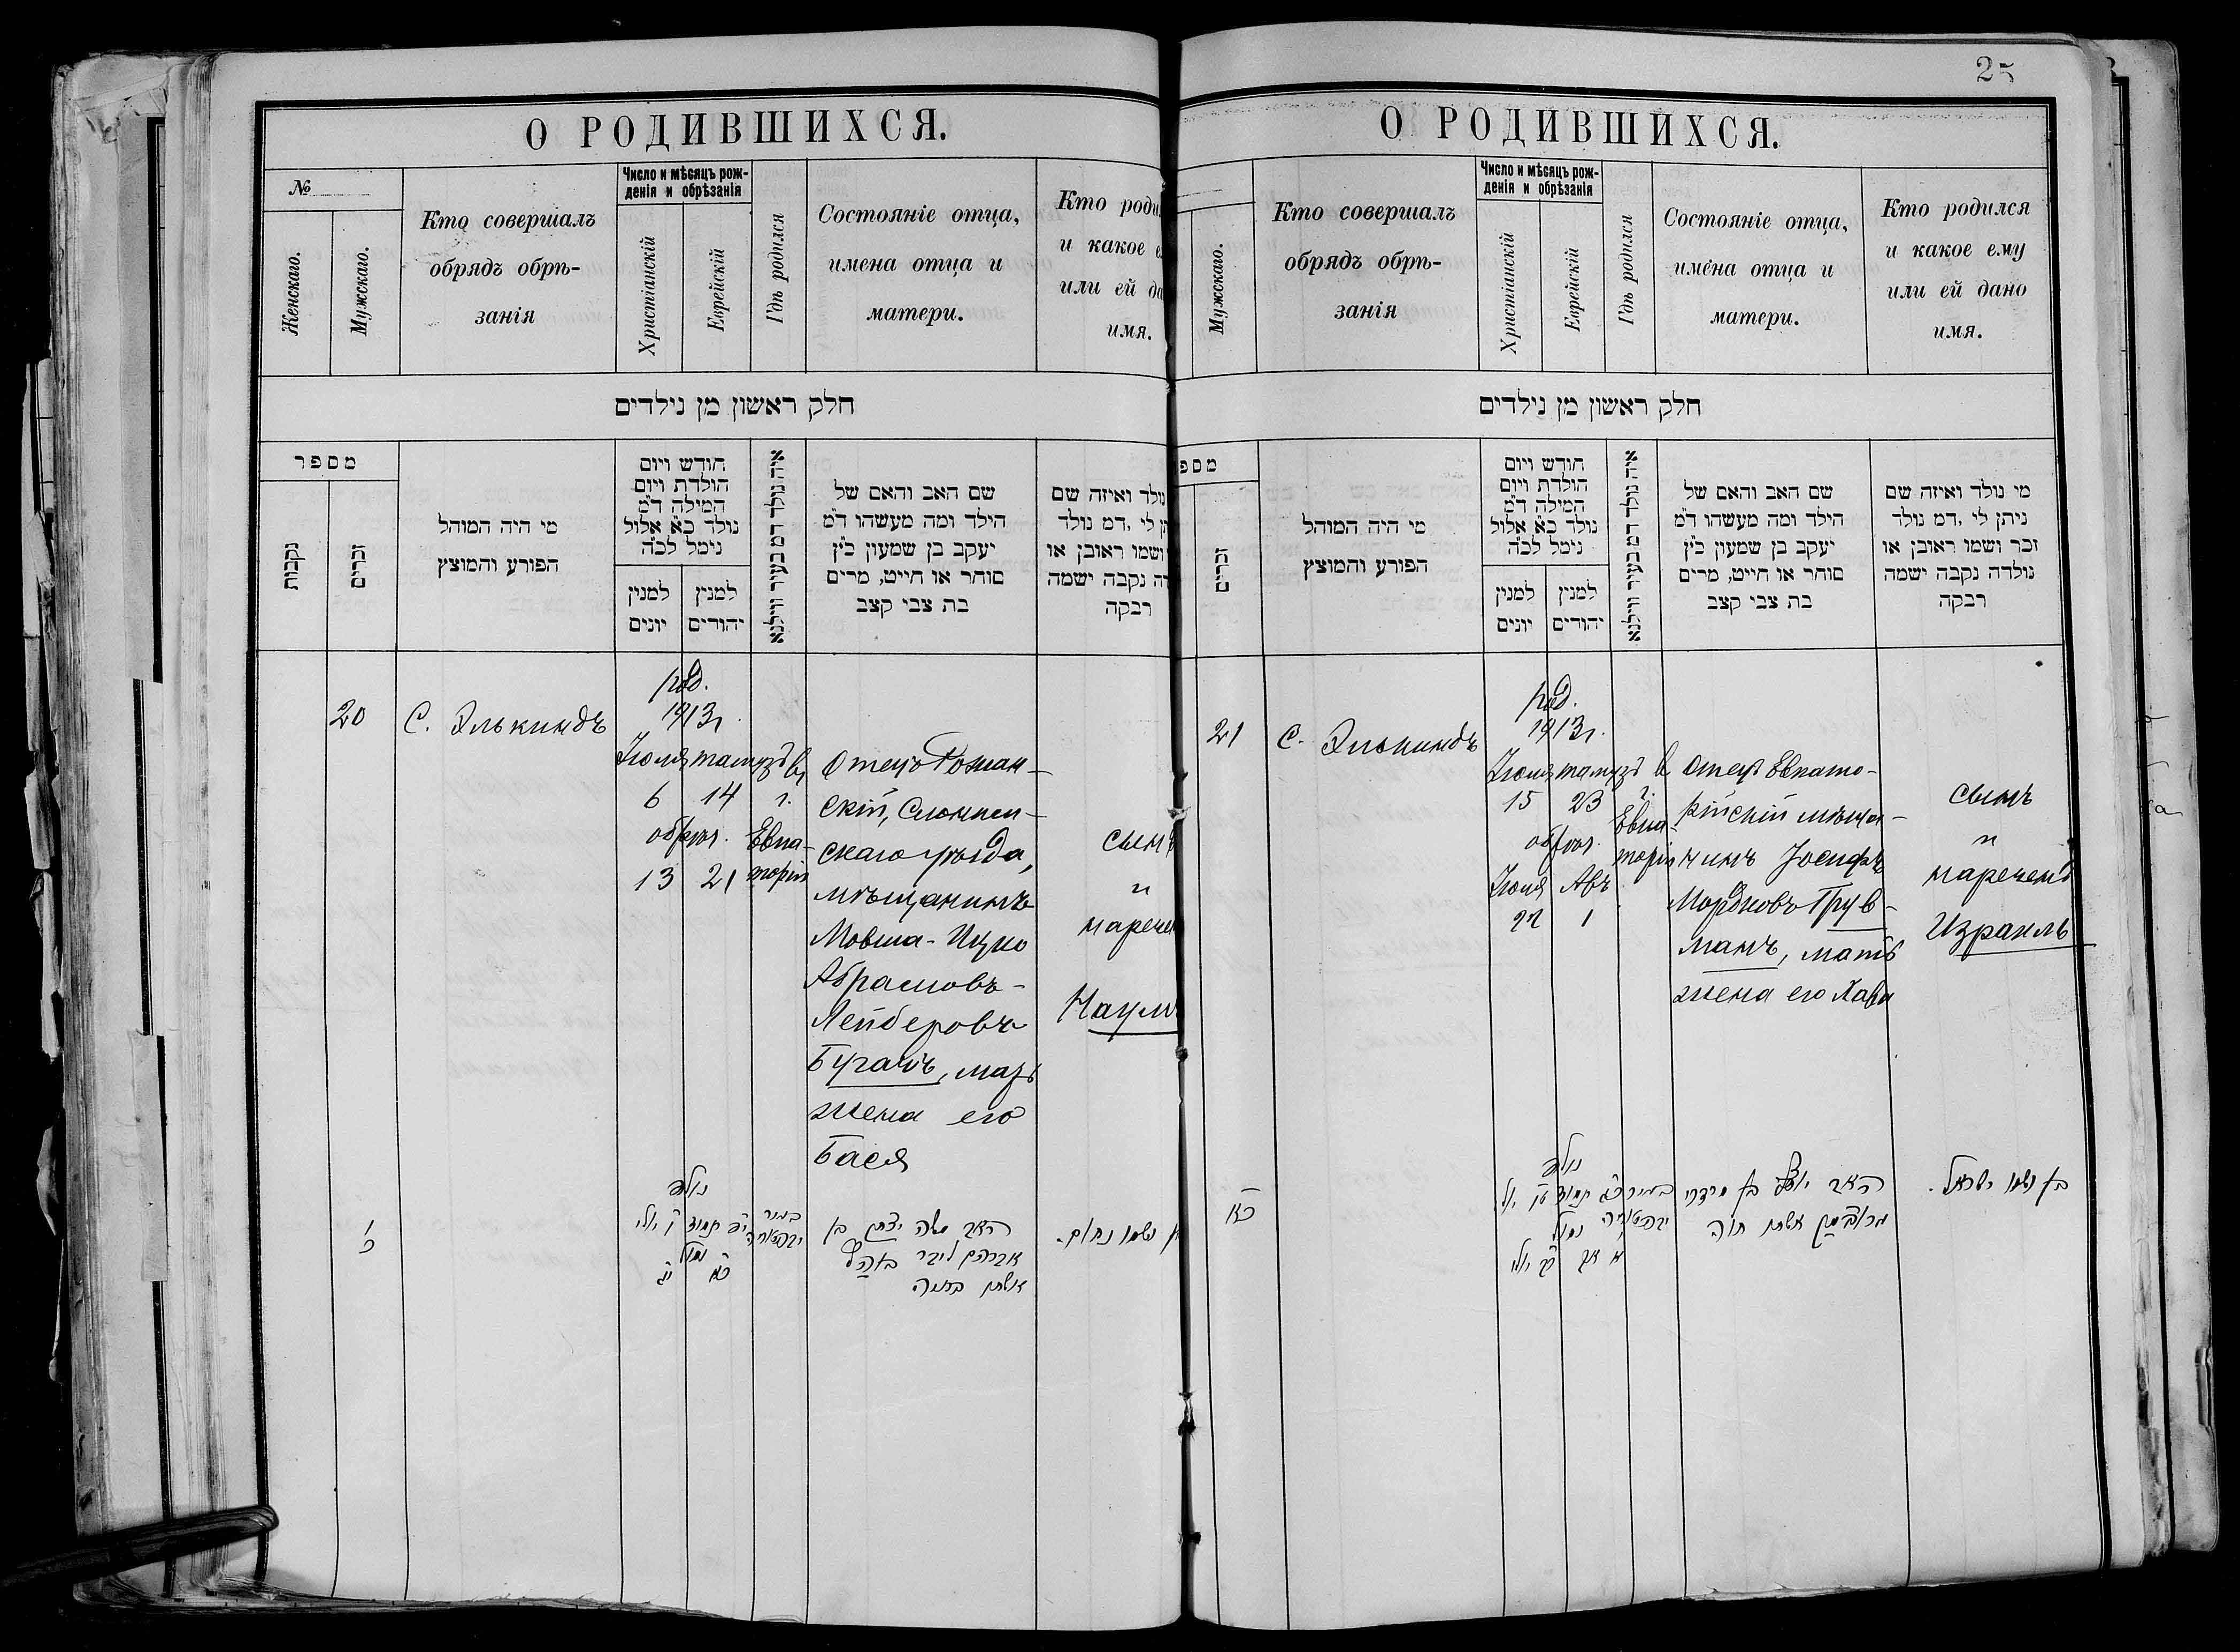 О РОДИВШИХСЯ.
№
Женскаго.
Мужскаго.
Кто совершалъ
обрядъ обрѣ-
занія
Число и мѣсяцъ рож-
денія и обрѣзанія
Христіанскій
Еврейскій
Гдѣ родился
Состояніе отца,
имена отца и
матери.
Кто роди
и какое е
или ей да
имя.
חלק ראשון מן נילדים
מספר
נקבות
זכרים
מי היה המוהל
הפורע והמוצץ
חודש ויום
הולדת ויום
המילה ד"מ
נולד כ"א אלול
נימל לכ"ה
למנין
יונים
למנין
יהודים
איה נולד דמ בעיר ווילנא
שם האב והאם של
הילד ומה מעשהו ד"מ
יעקב בן שמעון כ"ץ
סוחר או חייט, מרים
בת צבי קצב
נולד ואיזה שם
תן לי, דמ נולד
ושמו ראובן או
דה נקבה ישמה
רבקה
20
С. Элькиндъ
род.
1913 г.
Іюля тамузъ
6 14
обрѣз.
13 21
въ
г.
Евпа-
торіи
Отецъ Рожан-
скій, Слоним-
скаго уѣзда,
мѣщанинъ
Мовша-Ицко
Абрамовъ-
Лейберовъ
Бугачъ, мать
жена его
Бася
сынъ
и
наречен
Наумъ
כ
נולד
י"ד תמוז ו' יולי
נמול
כ"א י"ג
בעיר
האב משה יצחק בן
אברהם ליבר
אשתו בתיה
ושמו נחום.
25
О РОДИВШИХСЯ.
Мужскаго.
Кто совершалъ
обрядъ обрѣ-
занія
Число и мѣсяцъ рож-
денія и обрѣзанія
Христіанскій
Еврейскій
Гдѣ родился
Состояніе отца,
имена отца и
матери.
Кто родился
и какое ему
или ей дано
имя.
חלק ראשון מן נילדים
מספ
זכרים
מי היה המוהל
הפורע והמוצץ
חודש ויום
הולדת ויום
המילה ד"מ
נולד כ"א אלול
נימל לכ"ה
למנין
יונים
למנין
יהודים
איה נולד דמ בעיר ווילנא
שם האב והאם של
הילד ומה מעשהו ד"מ
יעקב בן שמעון כ"ץ
סוחר או חייט, מרים
בת צבי קצב
מי נולד ואיזה שם
ניתן לי, דמ נולד
זכר ושמו ראובן או
נולדה נקבה ישמה
רבקה
21
С. Элькиндъ
род.
1913 г.
Іюля тамузъ
15 23
обрѣз.
Іюля Авъ
22 1
в
г.
Евпа-
торіи
Отецъ Евпато-
рійскій мѣща-
нинъ Іосифъ
Мордковъ Трув-
манъ, мать
жена его Хава
сынъ
и
нареченъ
Израиль
כא
נולד
כ"ג תמוז ט"ו יולי
נמול
א' אב כ"ב יולי
בעיר
האב יוסף בן מרדכי
אשתו חוה
בן ושמו ישראל.